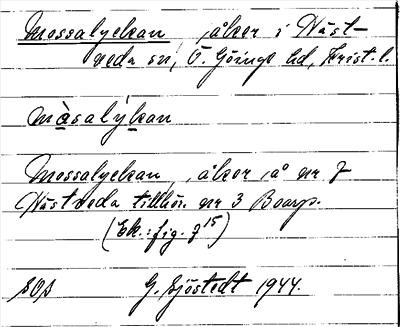 Mossalyckan, åker i Häst-
veda sn, Ö. Göinge hd, Krist. l.
måsalýkan
Mossalyckan, åker å nr 7
Hästveda tillhör. nr 3 Boarp.
(Ek.: fig. 7¹⁵)
G. Sjöstedt 1944.